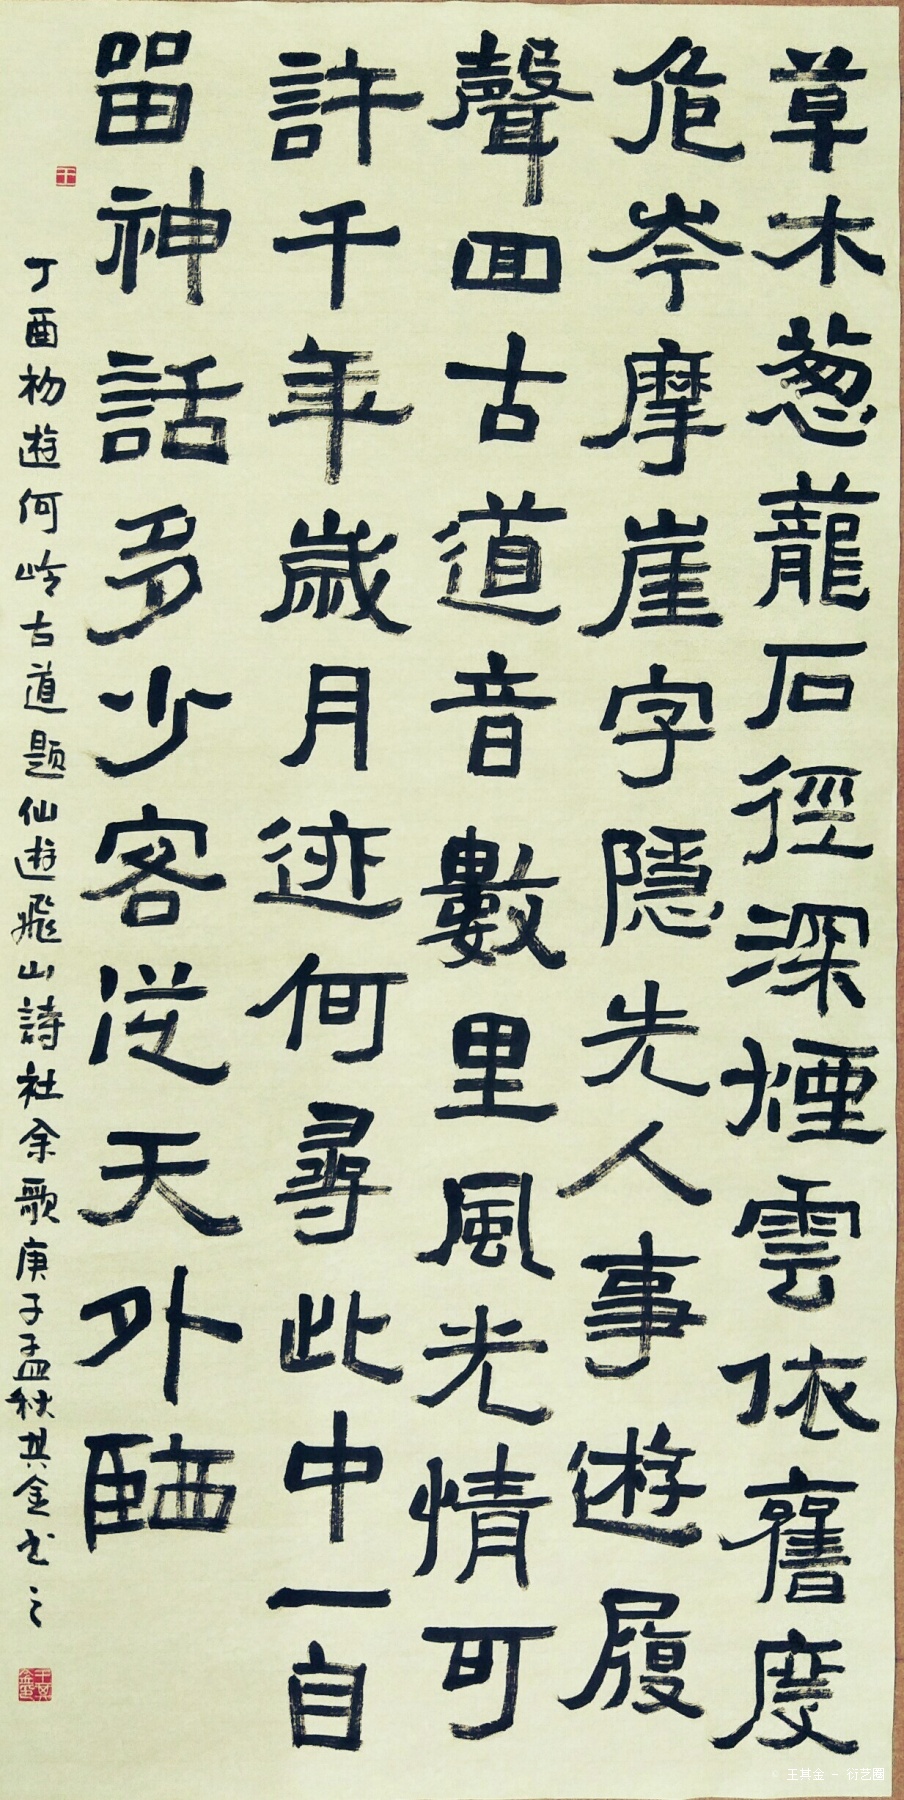 草木葱蘢石徑深煙雲依舊度
危岑摩崖字隱先人事遊履
聲回古道音數里風光情可
許千年歲月迹何尋此中一自
留神話多少客從天外臨
丁酉初遊何岭古道題仙遊飛山詩社余歌庚子孟秋其金书之
王
© 王其金 - 衍艺圈